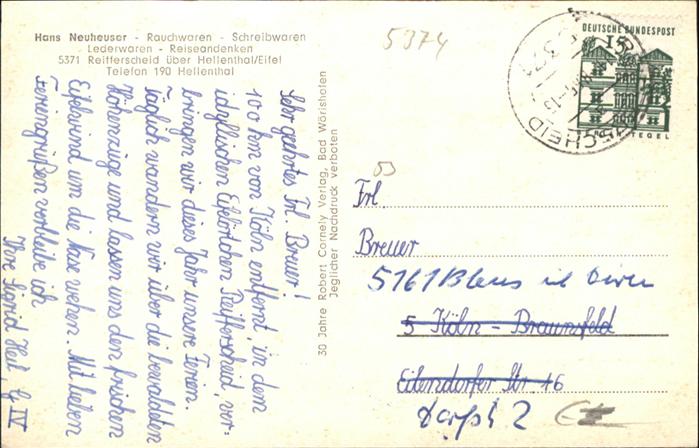 Hans Neuheuser - Rauchwaren - Schreibwaren
- Lederwaren - Reiseandenken
5371 Reifferscheid über Hellenthal/Eifel
Telefon 190 Hellenthal
5374
Sehr geehrtes Frl. Breuer!
100 km von Köln entfernt, in dem
idyllischen Eifelörtchen Reifferscheid, ver-
bringen wir dieses Jahr unsere Ferien.
Täglich wandern wir über die bewaldeten
Höhenzüge und lassen uns den frischen
Eifelwind um die Nase wehen. Mit lieben
Feriengrüßen verbleibe ich
Ihre Sigrid Heil, G IV
30 Jahre Robert Cornely Verlag, Bad Wörishofen
Jeglicher Nachdruck verboten
DEUTSCHE BUNDESPOST
15
TEGEL
Frl.
Breuer
5161 Blens
5 Köln - Braunsfeld
Eilendorfer Str. 16
Dorfstr 2